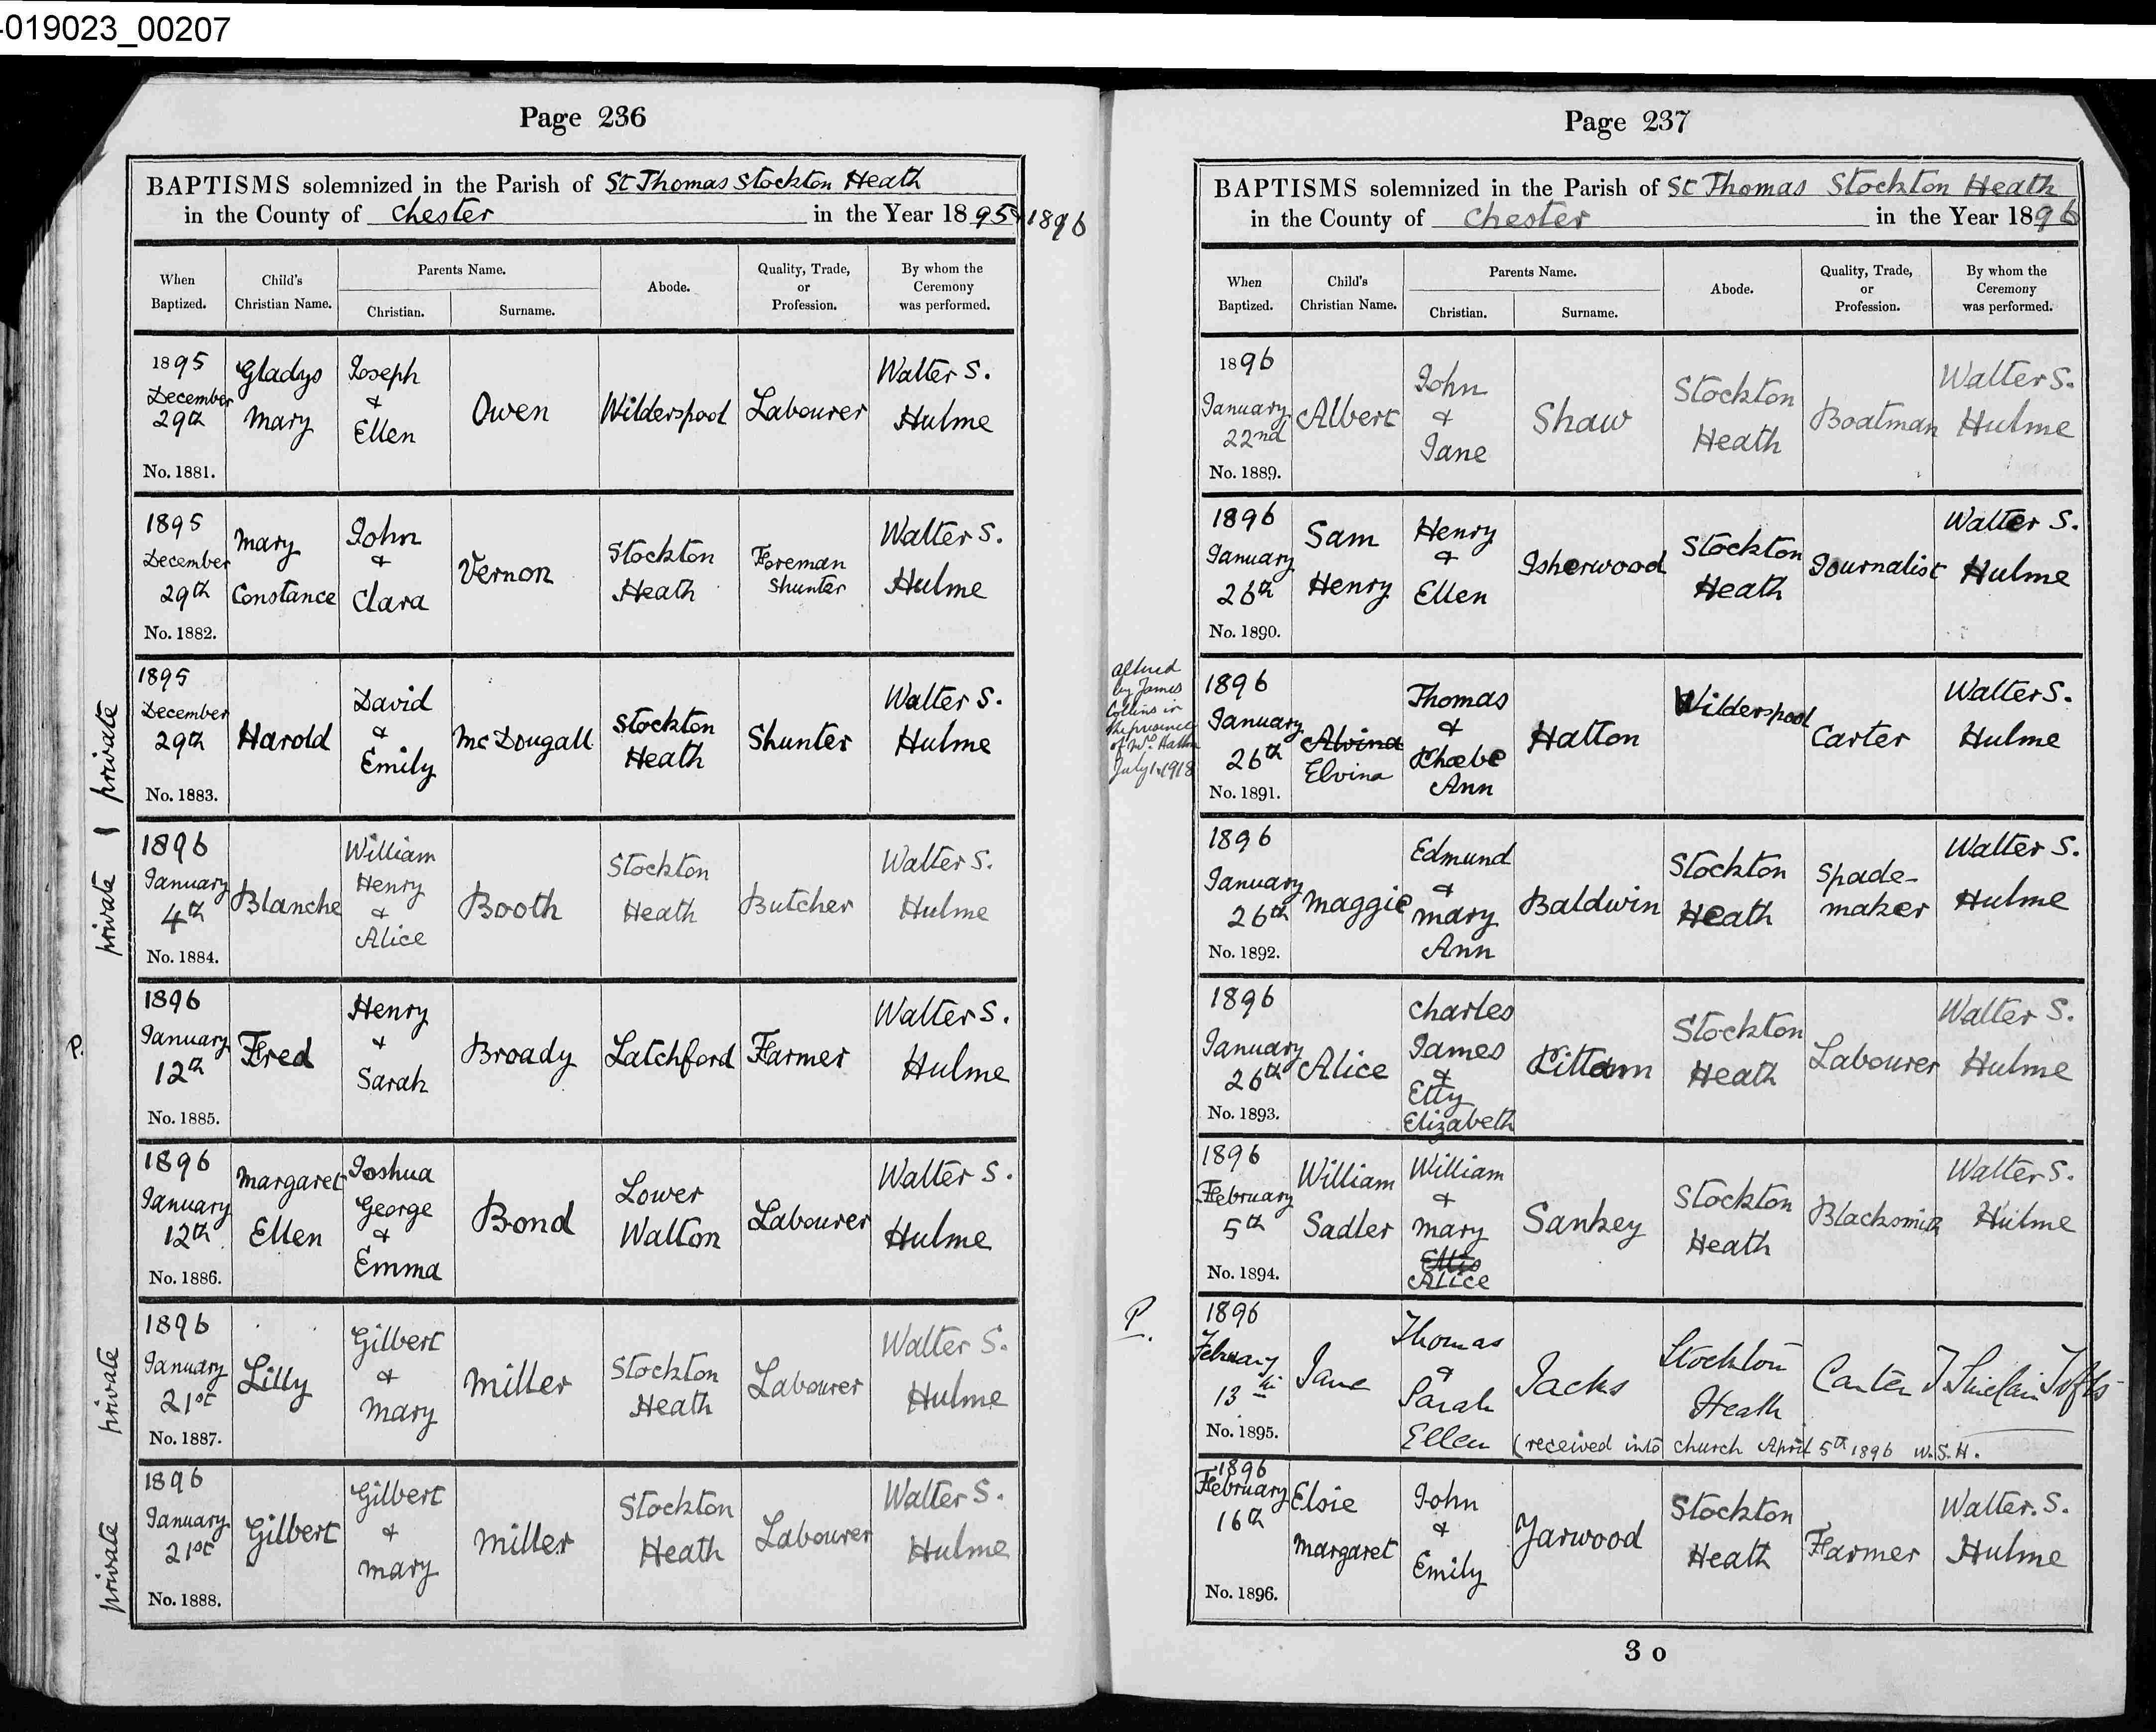 -019023_00207
Page 236
BAPTISMS solemnized in the Parish of St Thomas Stockton Heath
in the County of Chester in the Year 1895 & 1896
When Baptized. Child's Christian Name. Parents Name. Christian. Surname. Abode. Quality, Trade, or Profession. By whom the Ceremony was performed.
1895 December 29th Gladys Mary Joseph & Ellen Owen Wilderspool Labourer Walter S. Hulme
No. 1881.
1895 December 29th Mary Constance John & Clara Vernon Stockton Heath Foreman Shunter Walter S. Hulme
No. 1882.
private
1895 December 29th Harold David & Emily McDougall Stockton Heath Shunter Walter S. Hulme
No. 1883.
private
1896 January 4th Blanche William Henry & Alice Booth Stockton Heath Butcher Walter S. Hulme
No. 1884.
P.
1896 January 12th Fred Henry & Sarah Broady Latchford Farmer Walter S. Hulme
No. 1885.
1896 January 12th Margaret Ellen Joshua George & Emma Bond Lower Walton Labourer Walter S. Hulme
No. 1886.
private
1896 January 21st Lilly Gilbert & Mary Miller Stockton Heath Labourer Walter S. Hulme
No. 1887.
private
1896 January 21st Gilbert Gilbert & Mary Miller Stockton Heath Labourer Walter S. Hulme
No. 1888.
Page 237
BAPTISMS solemnized in the Parish of St Thomas Stockton Heath
in the County of Chester in the Year 1896
When Baptized. Child's Christian Name. Parents Name. Christian. Surname. Abode. Quality, Trade, or Profession. By whom the Ceremony was performed.
1896 January 22nd Albert John & Jane Shaw Stockton Heath Boatman Walter S. Hulme
No. 1889.
1896 January 26th Sam Henry Henry & Ellen Isherwood Stockton Heath Journalist Walter S. Hulme
No. 1890.
altered by James Collins in the presence of Mrs. Hatton July 1. 1918
1896 January 26th Alvina Elvina Thomas & Phoebe Ann Hatton Wilderspool Carter Walter S. Hulme
No. 1891.
1896 January 26th Maggie Edmund & Mary Ann Baldwin Stockton Heath Spade-maker Walter S. Hulme
No. 1892.
1896 January 26th Alice Charles James & Etty Elizabeth Kittam Stockton Heath Labourer Walter S. Hulme
No. 1893.
1896 February 5th William Sadler William & Mary Ellis Alice Sankey Stockton Heath Blacksmith Walter S. Hulme
No. 1894.
P.
1896 February 13th Jane Thomas & Sarah Ellen Jacks Stockton Heath Carter J. Sinclair
No. 1895.
(received into church April 5th 1896 W.S.H.
1896 February 16th Elsie Margaret John & Emily Yarwood Stockton Heath Farmer Walter. S. Hulme
No. 1896.
3 o